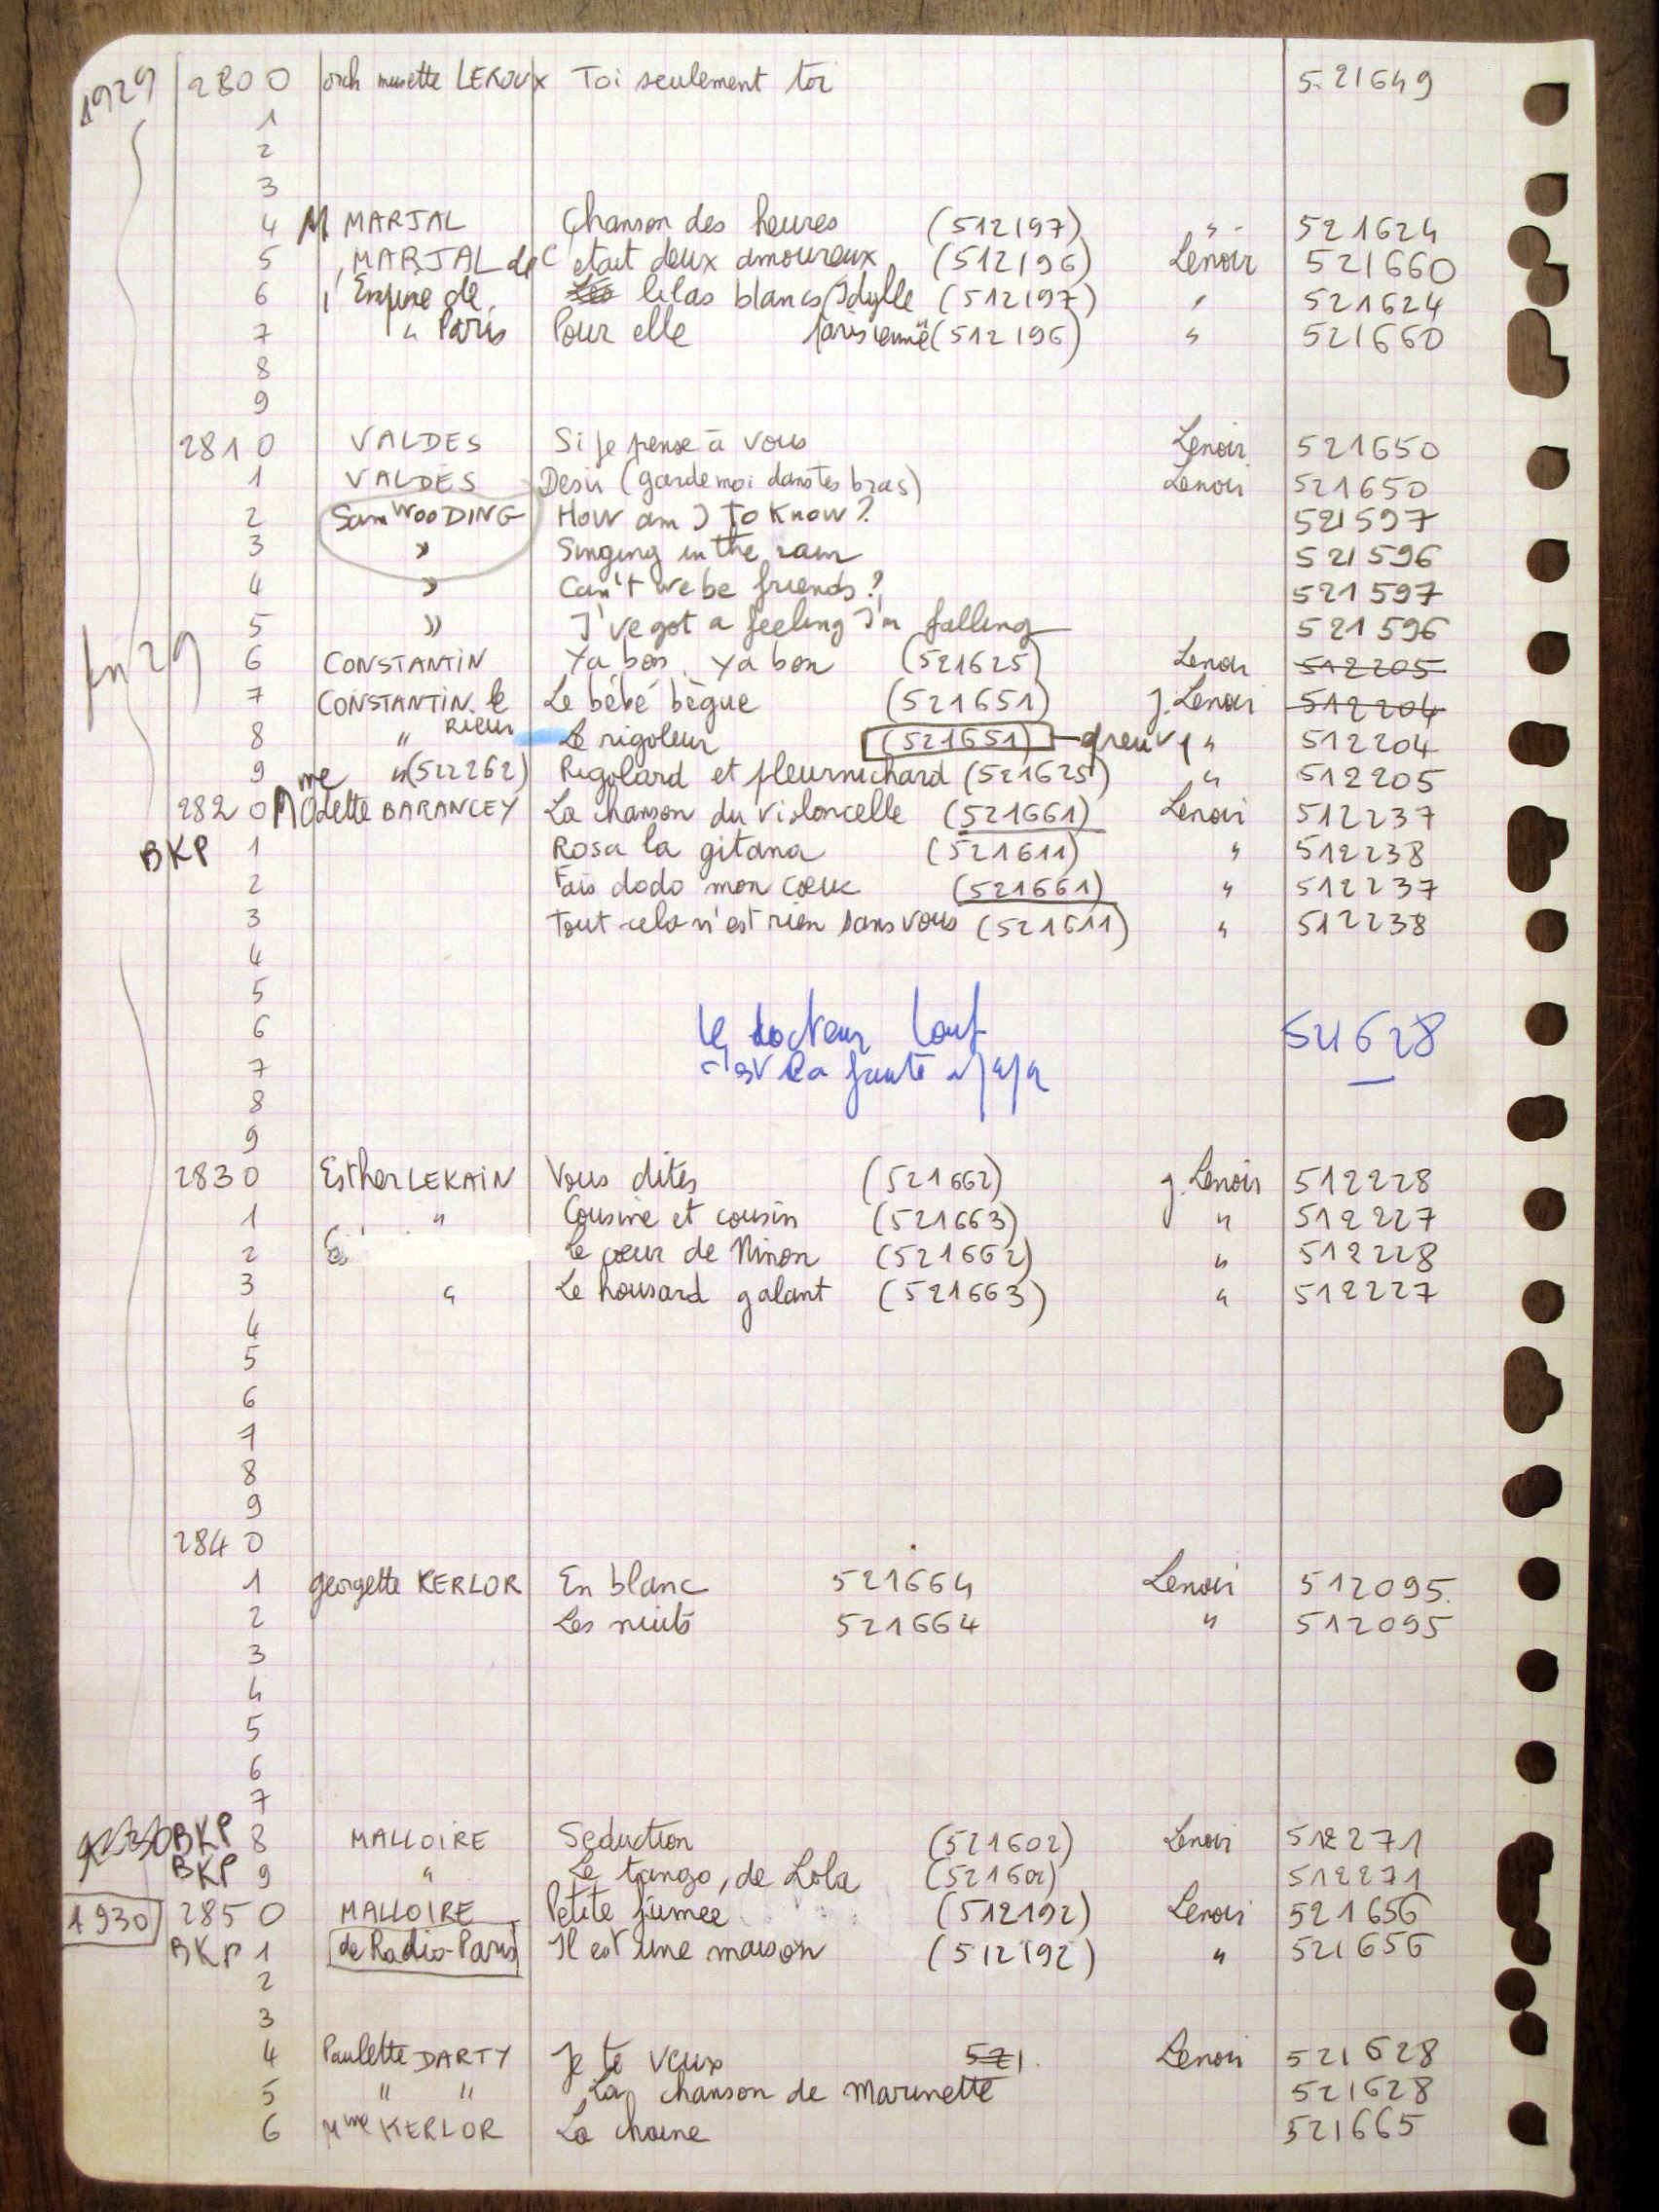 1929 2800 orch musette LEROUX Toi seulement toi 521649
1
2
3
4 M MARJAL Chanson des heures (512197) " 521624
5 MARJAL de C'etait deux amoureux (512196) Lenoir 521660
6 l'Empire de lilas blancs/Idylle (512197) " 521624
7 " Paris Pour elle parisienne (512196) " 521660
8
9
2810 VALDES Si je pense à vous Lenoir 521650
1 VALDES Desir (garde moi dans tes bras) Lenoir 521650
2 Sam WOODING How am I to know? 521597
3 " Singing in the rain 521596
4 " Can't we be friends? 521597
5 " I've got a feeling I'm falling 521596
fin 29 6 CONSTANTIN Ya bon, Ya bon (521625) Lenoir 512205
7 CONSTANTIN le Le bébé bègue (521651) J. Lenoir 512204
8 " Rieur Le rigoleur (521651) " 512204
9 " (522262) Rigolard et pleurnichard (521625) " 512205
2820 Mme Odette BARANCEY La chanson du violoncelle (521661) Lenoir 512237
BKP 1 Rosa la gitana (521611) " 512238
2 Fais dodo mon cœur (521661) " 512237
3 Tout cela n'est rien sans vous (521611) " 512238
4
5
6 le docteur Louf 521628
7 c'est la faute
8
9
2830 Esther LEKAIN Vous dites (521662) J. Lenoir 512228
1 " Cousine et cousin (521663) " 512227
2 Es Le cœur de Ninon (521662) " 512228
3 " Le housard galant (521663) " 512227
4
5
6
7
8
9
2840
1 Georgette KERLOR En blanc 521664 Lenoir 512095
2 Les nuits 521664 " 512095
3
4
5
6
7
BKP 8 MALLOIRE Seduction (521602) Lenoir 512271
BKP 9 " Le tango, de Lola (521602) 512271
1930 2850 MALLOIRE Petite fumee (512192) Lenoir 521656
BKP 1 de Radio-Paris Il est une maison (512192) " 521656
2
3
4 Paulette DARTY Je te veux 521 Lenoir 521628
5 " " La chanson de Marinette 521628
6 Mme KERLOR La chaine 521665